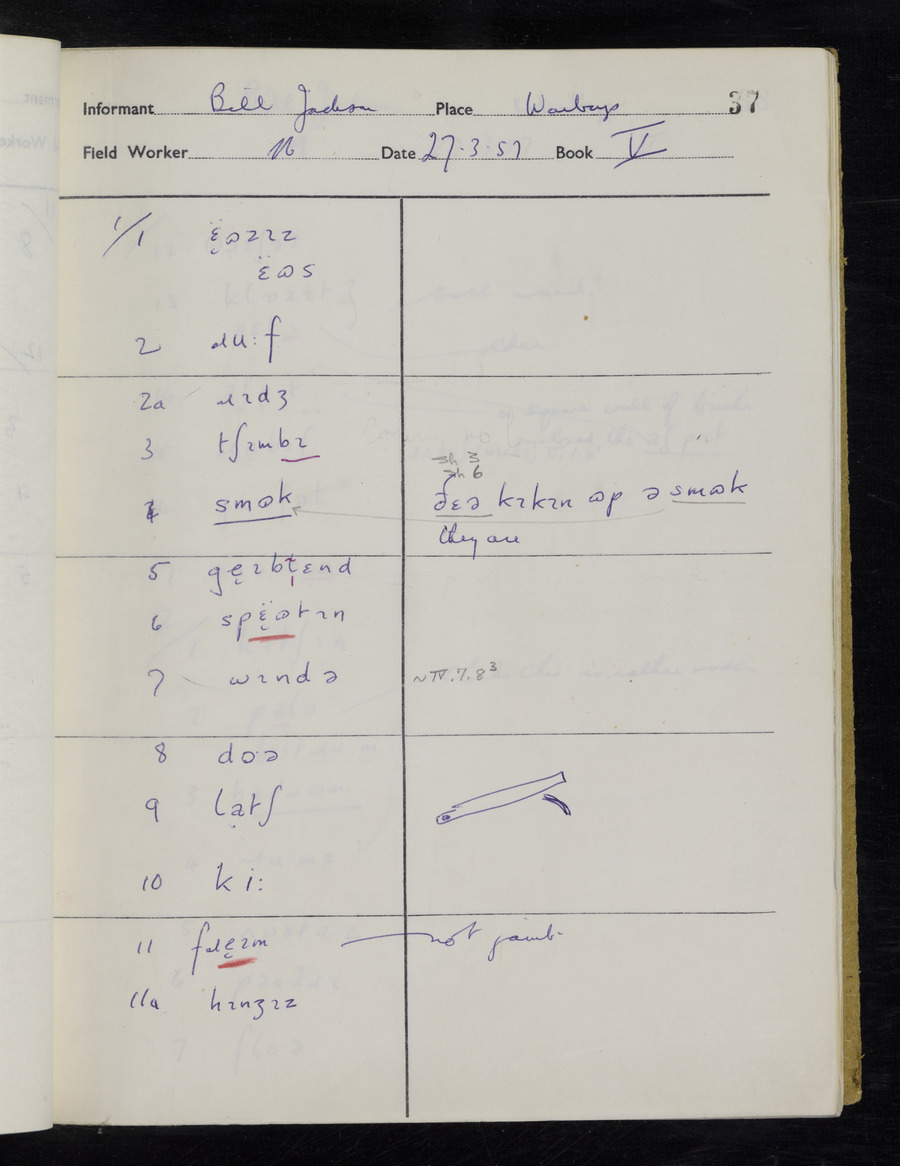 Informant Bill Jackson Place Warboys 37
Field Worker Date 27.3.57 Book V
1/1 ɛ̈ɷzɪz
ɛ̈ɷs
2 ɹu:f
2a ɹɪdʒ
3 tʃɪmbɪ
sh 3
sh 6
4 smɷk ðɛə kɪkɪn ɷp ə smɷk
they are
5 gɛɪbɫ̩ɛnd
6 spɛ̈ɷtɪn
7 wɪndə ~IV.7.8³
8 doə
9 latʃ
10 ki:
11 fɹɛɪm not jamb
11a hɪnʒɪz